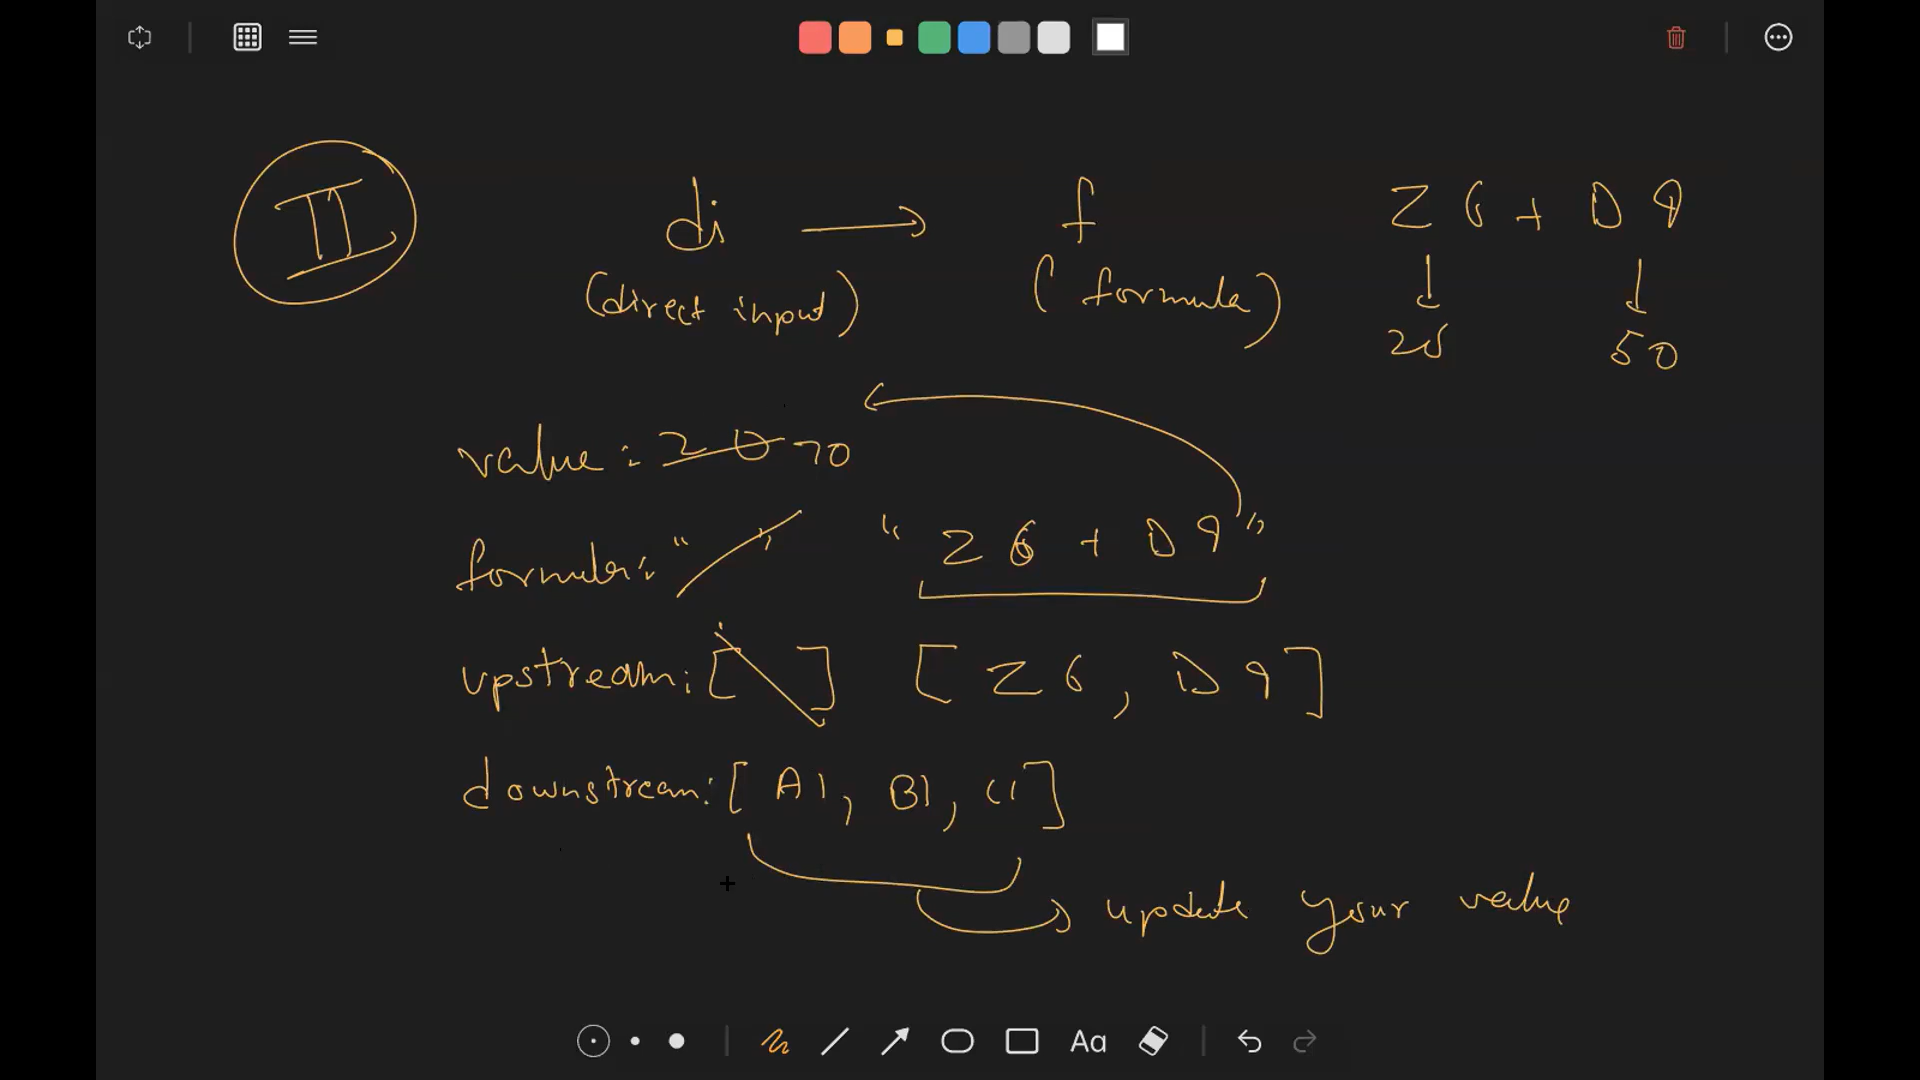 II
di → f Z6 + D9
(direct input) (formula) ↓ ↓
50
value: 20 70
formula: " " "Z6 + D9"
upstream: [ ] [Z6, D9]
downstream: [A1, B1, C1]
update your value
Aa